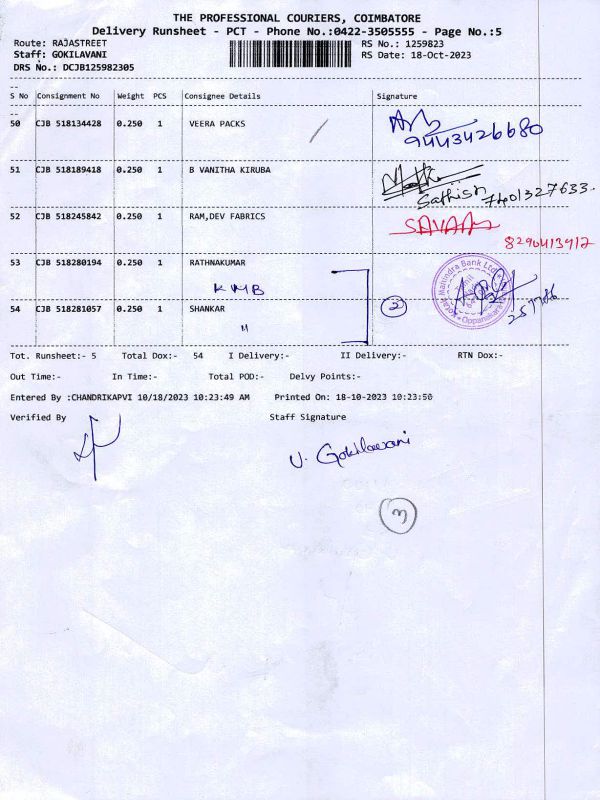 THE PROFESSIONAL COURIERS, COIMBATORE
Delivery Runsheet - PCT - Phone No.:0422-3505555 - Page No.:5
Route: RAJASTREET RS No.: 1259823
Staff: GOKILAVANI RS Date: 18-Oct-2023
DRS No.: DCJB125982305
--
S No Consignment No Weight PCS Consignee Details Signature
--
50 CJB 518134428 0.250 1 VEERA PACKS
9443426680
51 CJB 518189418 0.250 1 B VANITHA KIRUBA
Sathish 7401327633.
52 CJB 518245842 0.250 1 RAM,DEV FABRICS
8290413912
53 CJB 518280194 0.250 1 RATHNAKUMAR
KMB
Kotak Mahindra Bank Ltd
Oppanakara
2
257786
54 CJB 518281057 0.250 1 SHANKAR
11
Tot. Runsheet:- 5 Total Dox:- 54 I Delivery:- II Delivery:- RTN Dox:-
Out Time:- In Time:- Total POD:- Delvy Points:-
Entered By :CHANDRIKAPVI 10/18/2023 10:23:49 AM Printed On: 18-10-2023 10:23:50
Verified By Staff Signature
V. Gokilavani
3